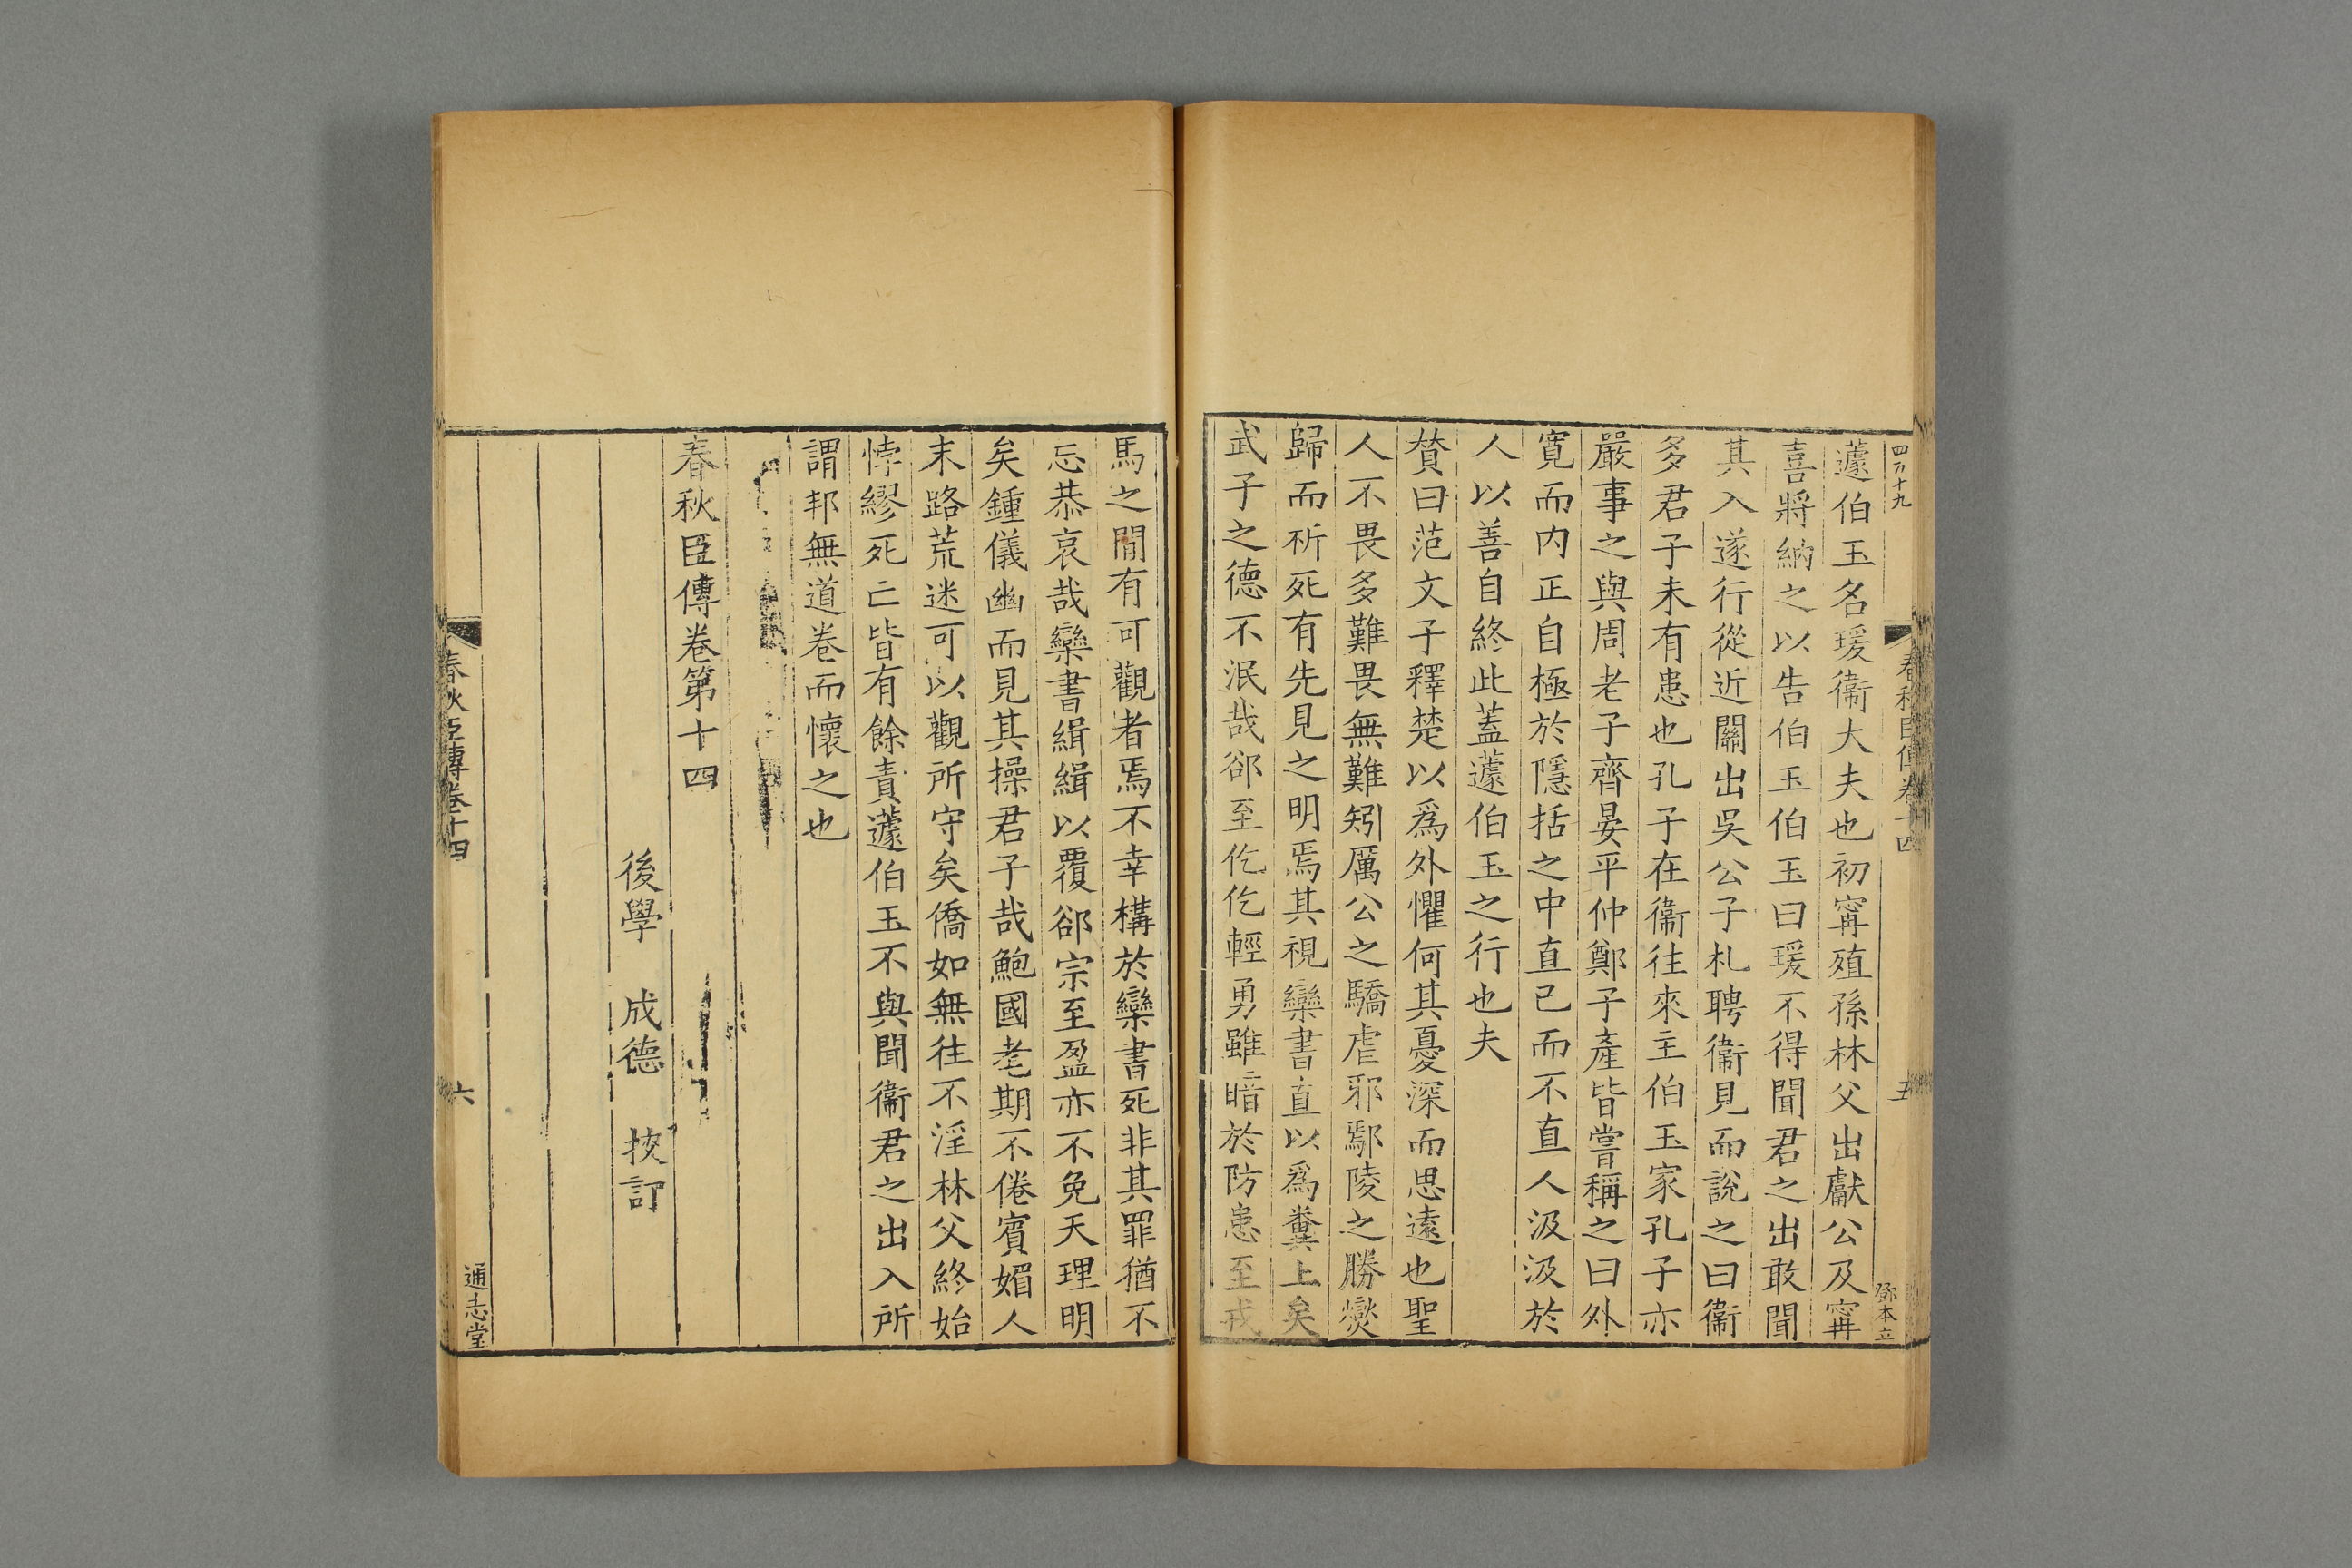 四百十九
春秋臣傳卷十四
五
鄧本立
蘧伯玉名瑗衞大夫也初寗殖孫林父出獻公及寗
喜將納之以告伯玉伯玉曰瑗不得聞君之出敢聞
其入遂行從近關出吳公子札聘衞見而說之曰衞
多君子未有患也孔子在衞往來主伯玉家孔子亦
嚴事之與周老子齊晏平仲鄭子產皆嘗稱之曰外
寛而内正自極於隱括之中直已而不直人汲汲於
人以善自終此蓋蘧伯玉之行也夫
賛曰范文子釋楚以爲外懼何其憂深而思遠也聖
人不畏多難畏無難矧厲公之驕虐邪鄢陵之勝爕
歸而祈死有先見之明焉其視欒書直以爲糞上矣
武子之德不泯哉郤至仡仡輕勇雖暗於防患至戎
馬之間有可觀者焉不幸構於欒書死非其罪猶不
忘恭哀哉欒書緝緝以覆郤宗至盈亦不免天理明
矣鍾儀幽而見其操君子哉鮑國耄期不倦賔媚人
末路荒迷可以觀所守矣僑如無往不淫林父終始
悖繆死亡皆有餘責蘧伯玉不與聞衞君之出入所
謂邦無道卷而懷之也
春秋臣傳卷第十四
後學 成德 挍訂
春秋臣傳卷十四
六
通志堂